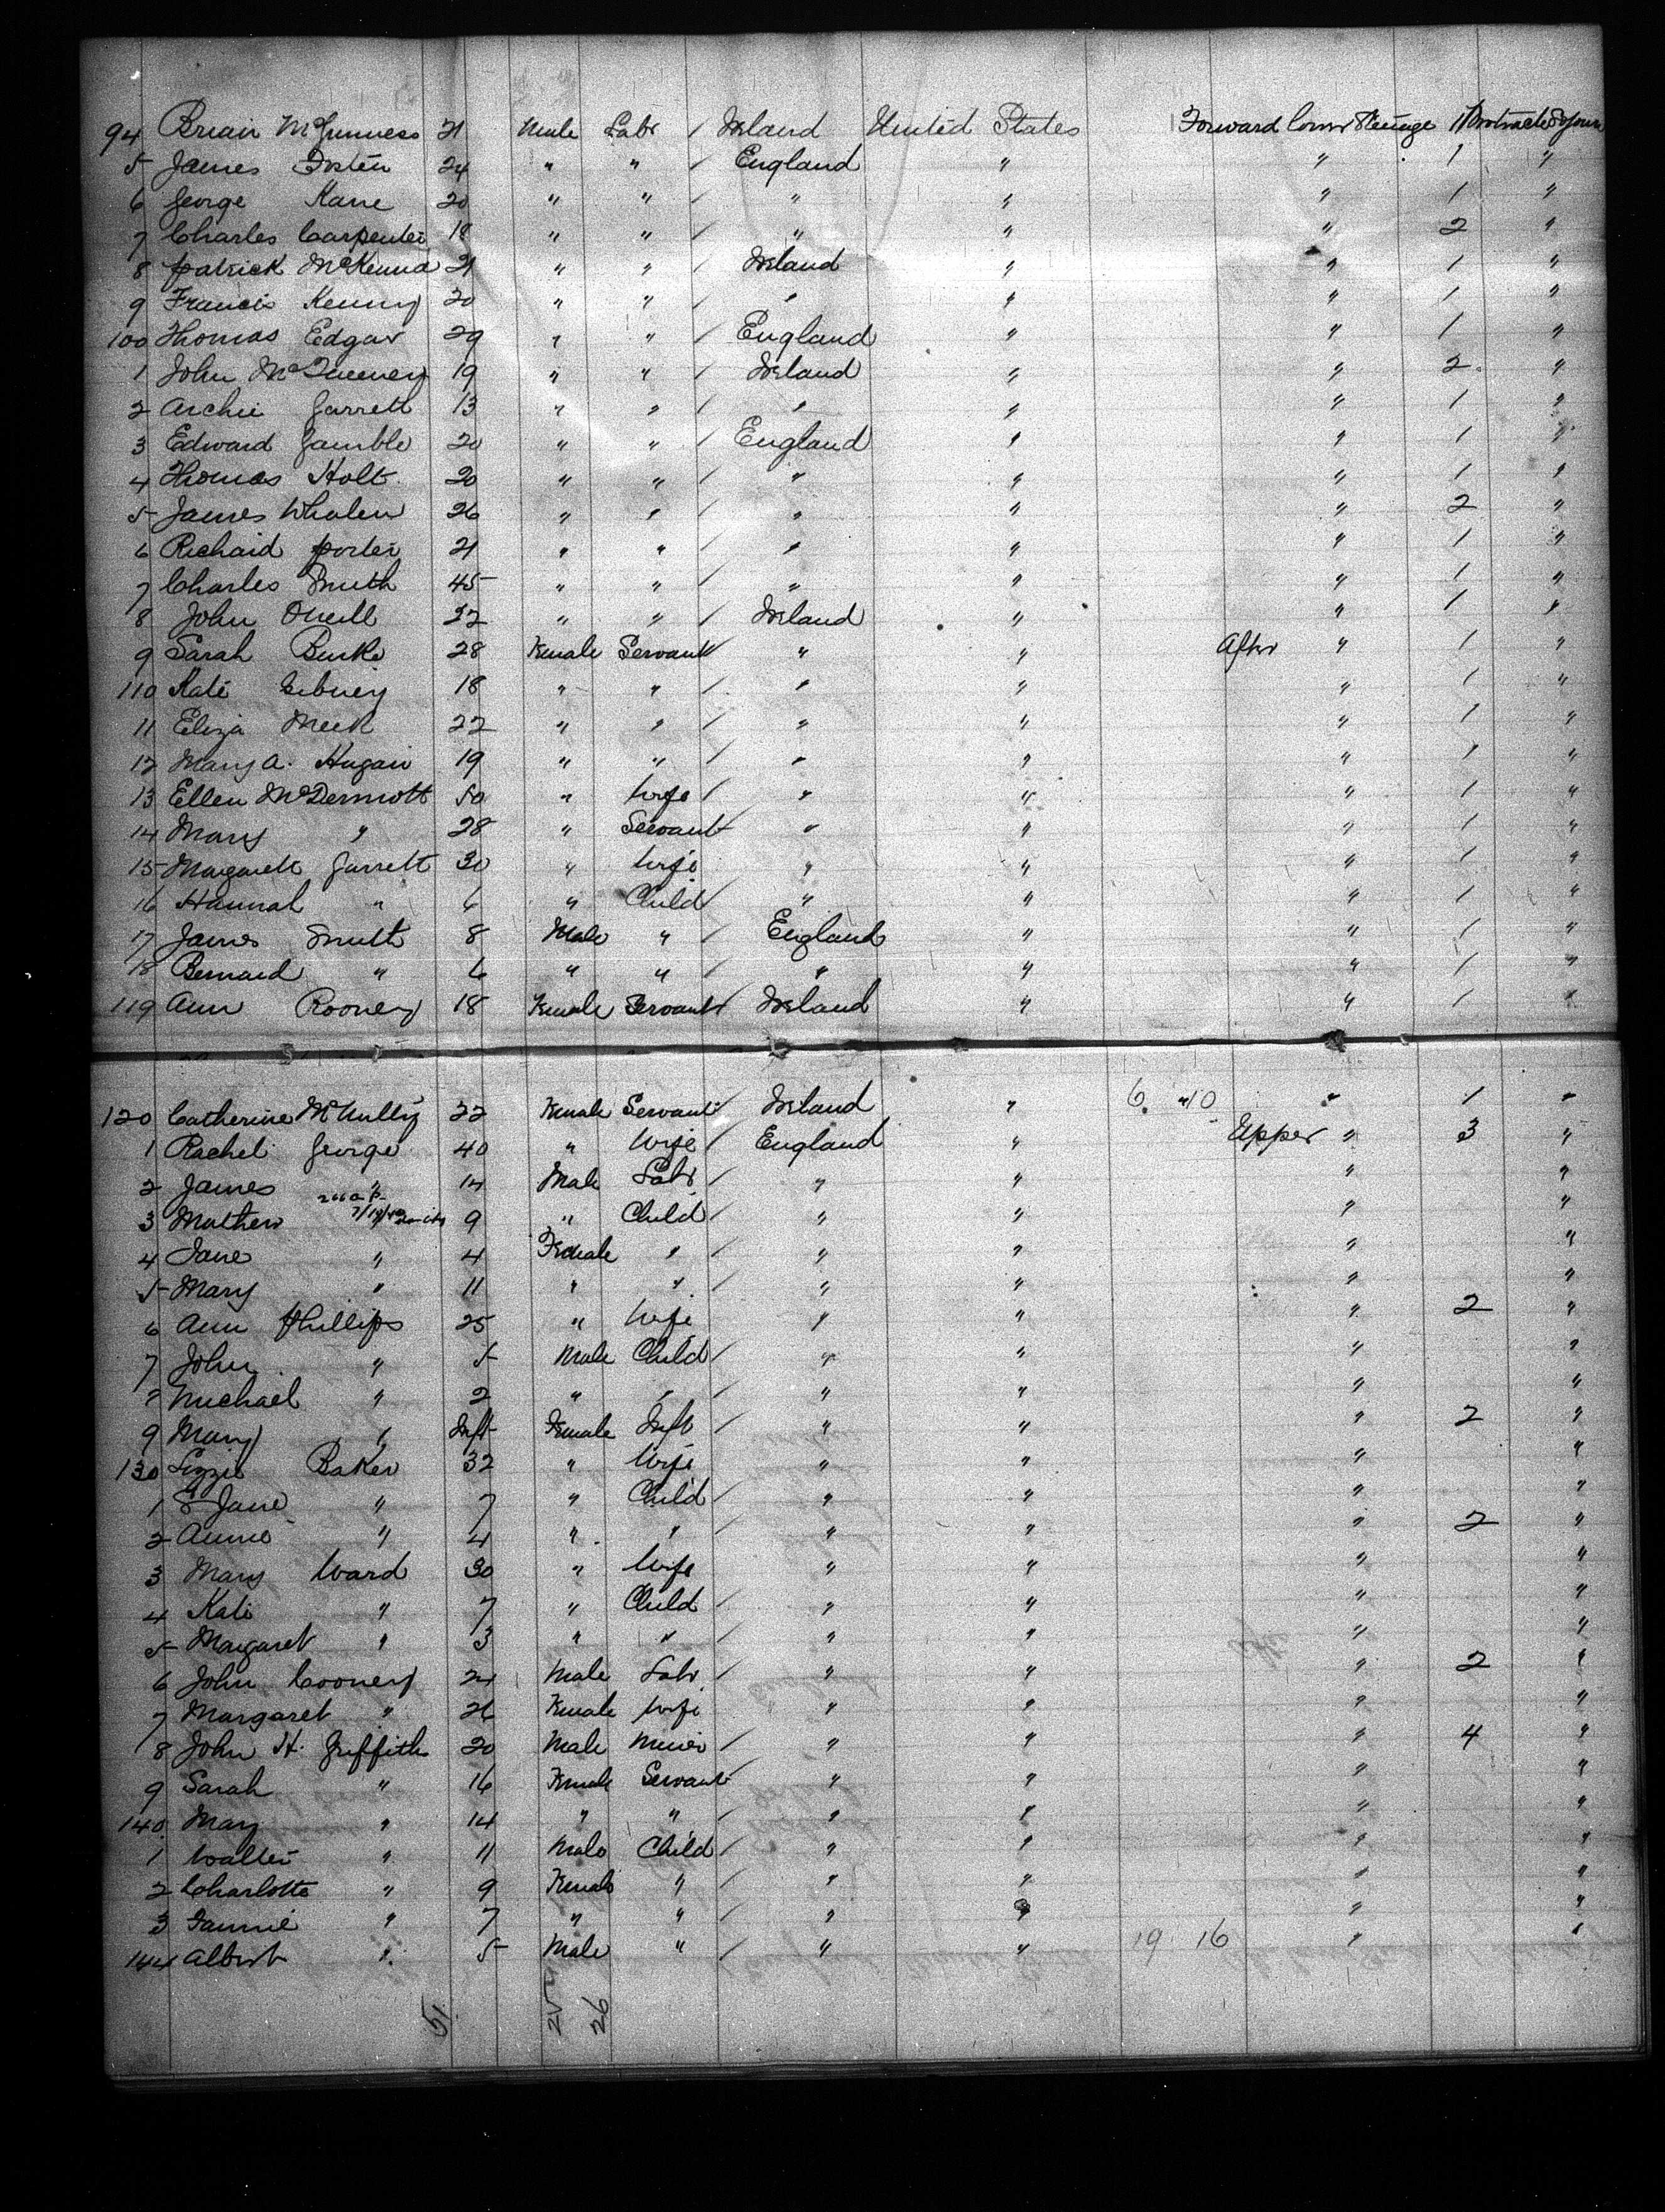 94 Brian McGunness 21 Male Labr / Ireland United States Forward Lower Steerage 1 Protracted Sojourn
5 James Foster 24 " " / England " " 1 "
6 George Kane 20 " " / " " " 1 "
7 Charles Carpenter 18 " " / " " " 2 "
8 Patrick McKenna 21 " " / Ireland " " 1 "
9 Francis Kenny 20 " " / " " " 1 "
100 Thomas Edgar 29 " " / England " " 1 "
1 John McTueeney 19 " " / Ireland " " 2 "
2 Archie Garrett 13 " " / " " " 1 "
3 Edward Gamble 20 " " / England " " 1 "
4 Thomas Holt 20 " " / " " " 1 "
5 James Whalen 26 " " / " " " 2 "
6 Richard Porter 21 " " / " " " 1 "
7 Charles Smith 45 " " / " " " 1 "
8 John ONeill 22 " " / Ireland " " 1 "
9 Sarah Burke 28 Female Servant / " " After " 1 "
110 Kate Gibney 18 " " / " " " 1 "
11 Eliza Meek 22 " " / " " " 1 "
12 Mary A. Hugan 19 " " / " " " 1 "
13 Ellen McDermott 50 " Wife / " " " 1 "
14 Mary " 28 " Servant / " " " 1 "
15 Margarett Garrett 30 " Wife / " " " 1 "
16 Hannah " 6 " Child / " " " 1 "
17 James Smith 8 Male " / England " " 1 "
18 Bernard " 6 " " / " " " 1 "
119 Ann Rooney 18 Female Servant / Ireland " " 1 "
120 Catherine McNulty 22 Female Servant / Ireland " 6 10 " 1 "
1 Rachel George 40 " Wife / England " Upper " 3 "
2 James " 14 Male Labr / " " " "
3 Mathew " 9 " Child / " " " "
4 Jane " 4 Female " / " " " "
5 Mary " 11 " " / " " " "
6 Ann Phillips 25 " Wife / " " " 2 "
7 John " 5 Male Child / " " " "
8 Michael " 2 " " / " " " "
9 Mary " Inft Female Inft / " " " 2 "
130 Lizzie Baker 32 " Wife / " " " "
1 S Jane " 7 " Child / " " " "
2 Annie " 4 " " / " " " 2 "
3 Mary Ward 30 " Wife / " " " "
4 Kate " 7 " Child / " " " "
5 Margaret " 3 " " / " " " "
6 John Cooney 24 Male Labr / " " " 2 "
7 Margaret " 26 Female Wife / " " " "
8 John H. Griffiths 20 Male Miner / " " " 4 "
9 Sarah " 16 Female Servant / " " " "
140 Mary " 14 " " / " " " "
1 Walter " 11 Male Child / " " " "
2 Charlotte " 9 Female " / " " " "
3 Fannie " 7 " " / " " " "
144 Albert " 5 Male " / " " 19 16 " "
51
26